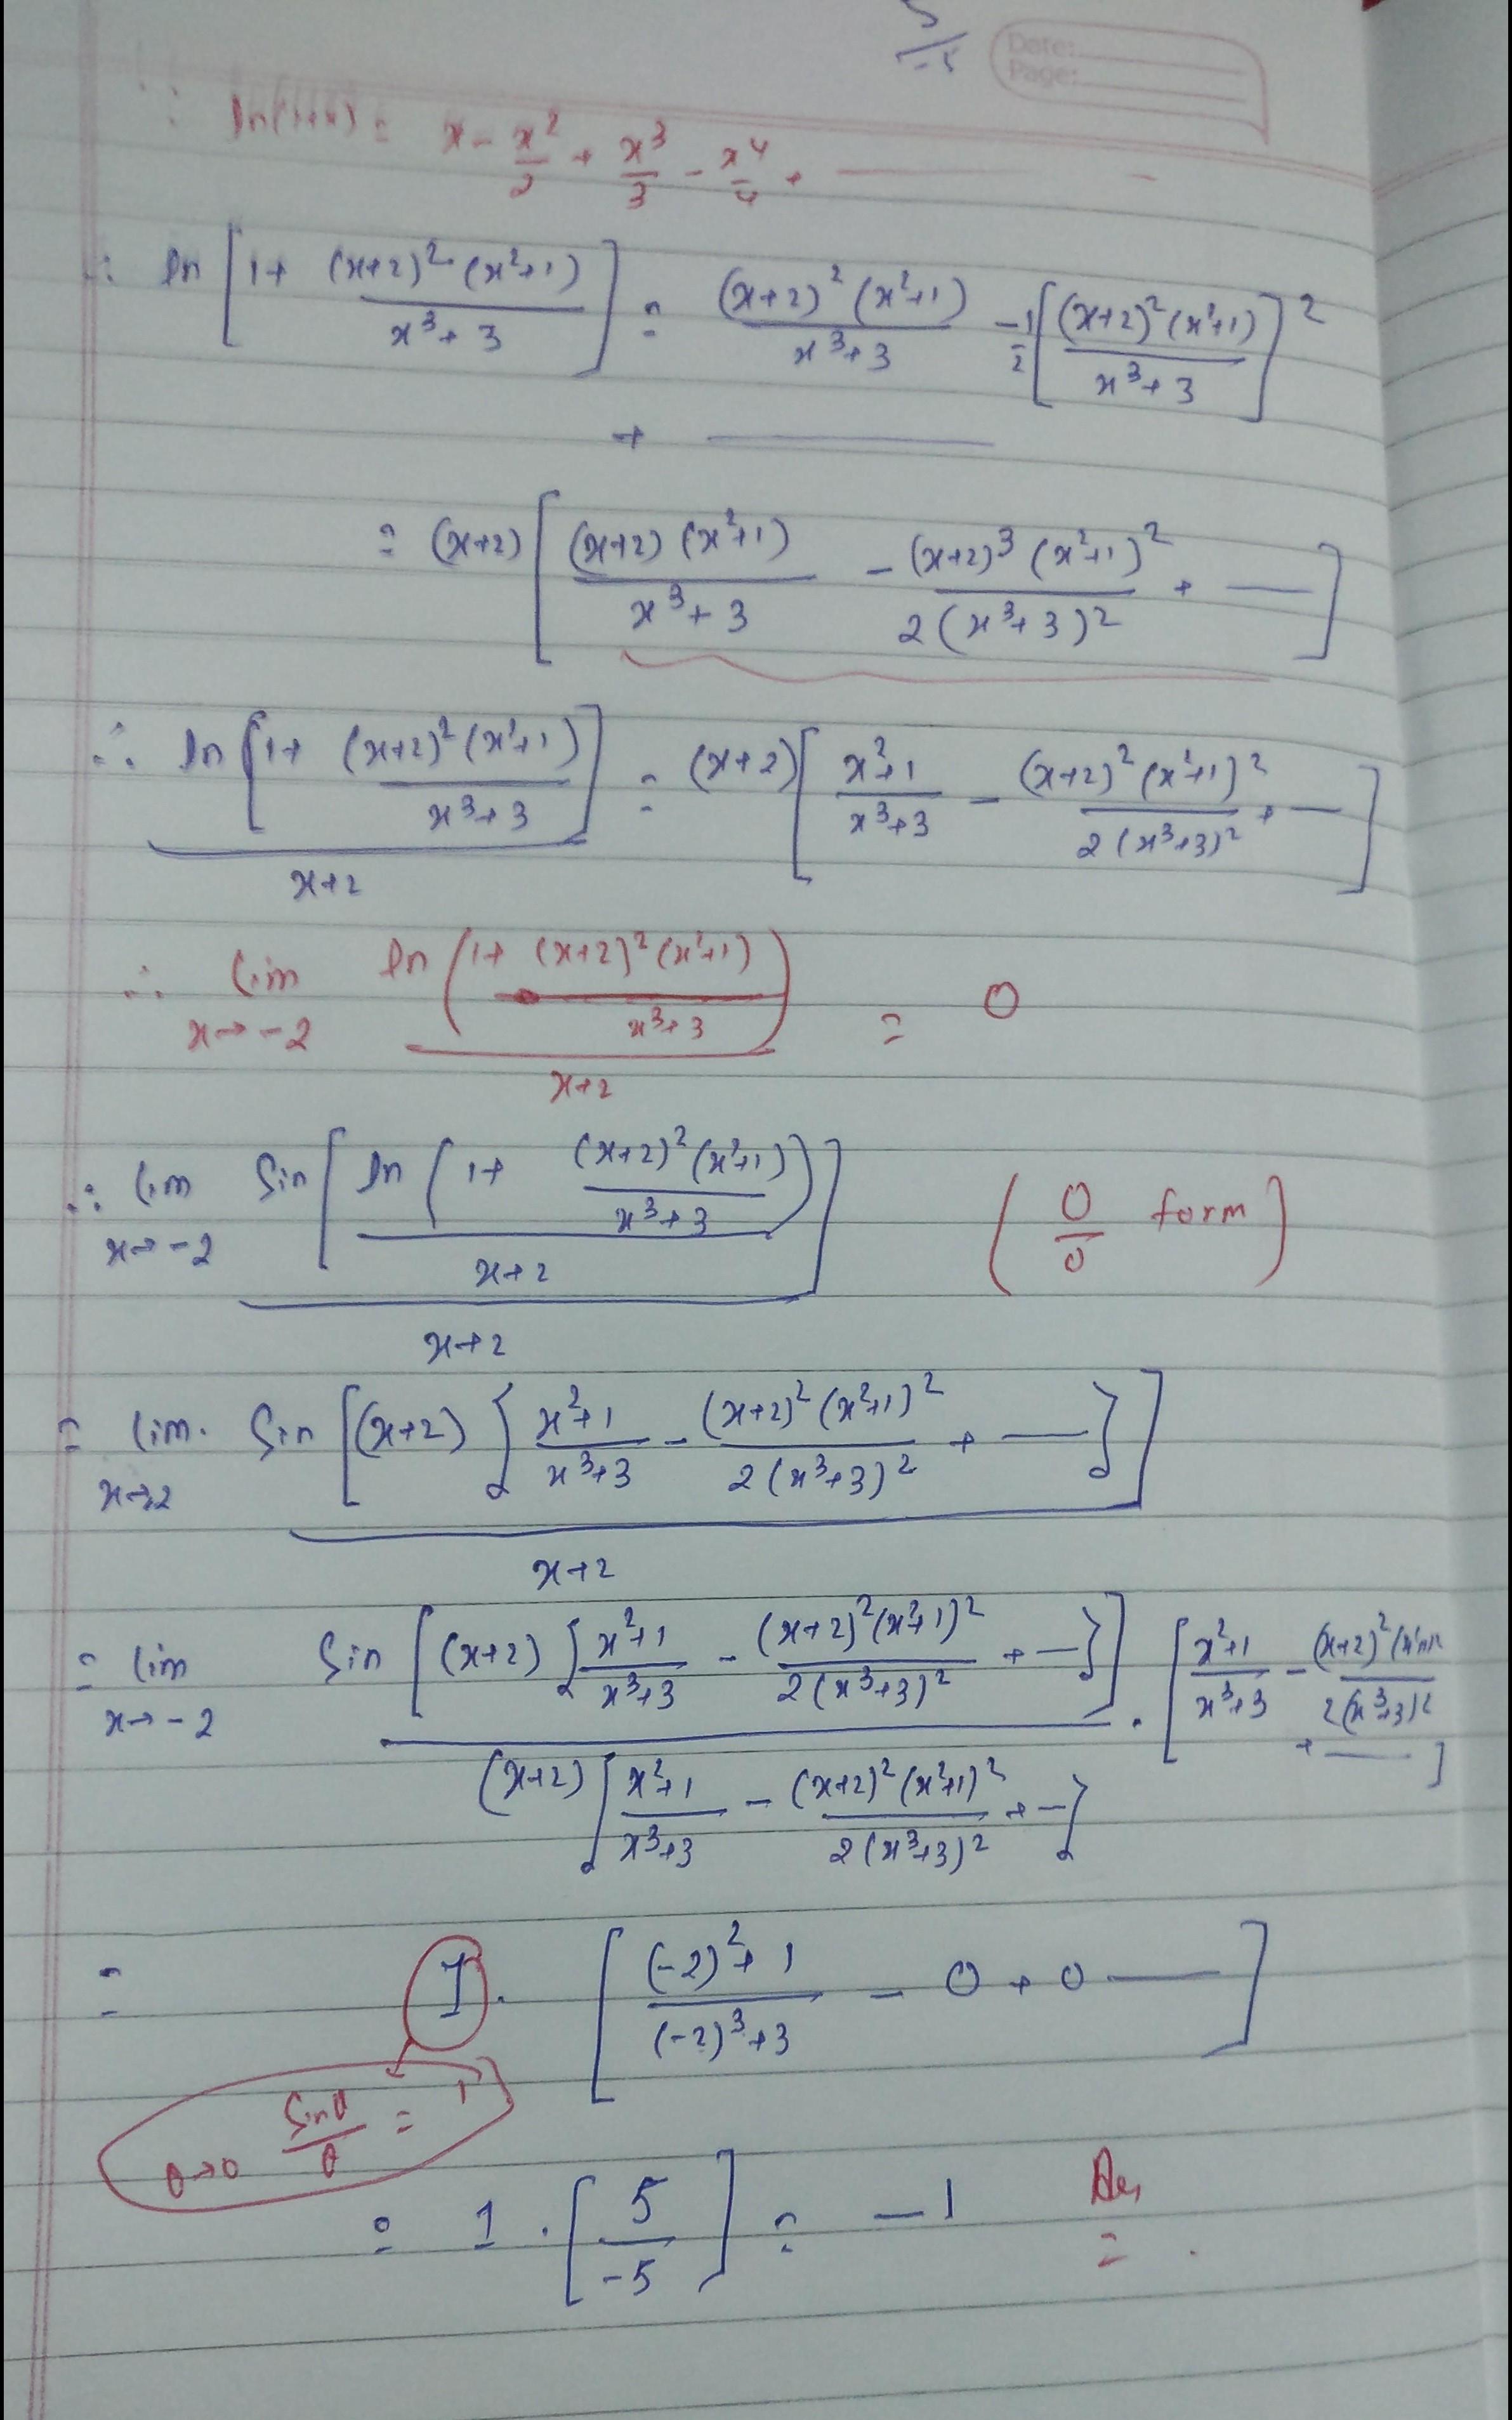 5/-5
Date:
Page:
∵ ln(1+x) = x - x²/2 + x³/3 - x⁴/4 + ——— -
∴ ln [1+ (x+2)² (x²+1) / x³+3] = (x+2)² (x²+1) / x³+3 - 1/2 [(x+2)² (x²+1) / x³+3]²
+ ———
= (x+2) [(x+2) (x²+1) / x³+3 - (x+2)³ (x²+1)² / 2(x³+3)² + —]
∴ ln [1+ (x+2)² (x²+1) / x³+3] / x+2 = (x+2) [x²+1 / x³+3 - (x+2)² (x²+1)² / 2(x³+3)² + —]
∴ lim x→-2 ln (1+ (x+2)² (x²+1) / x³+3) / x+2 = 0
∴ lim x→-2 Sin [ln (1+ (x+2)² (x²+1) / x³+3) / x+2] / x+2 (0/0 form)
= lim. x→2 Sin [(x+2) {x²+1 / x³+3 - (x+2)² (x²+1)² / 2(x³+3)² + —}] / x+2
= lim x→-2 Sin [(x+2) {x²+1 / x³+3 - (x+2)² (x²+1)² / 2(x³+3)² + —}] / (x+2) {x²+1 / x³+3 - (x+2)² (x²+1)² / 2(x³+3)² + —} . [x²+1 / x³+3 - (x+2)² (x²+1)² / 2(x³+3)² + —]
= 1. [(-2)²+1 / (-2)³+3 - 0 + 0 ——]
θ→0 Sinθ/θ = 1
= 1 . [5/-5] = -1 Ans